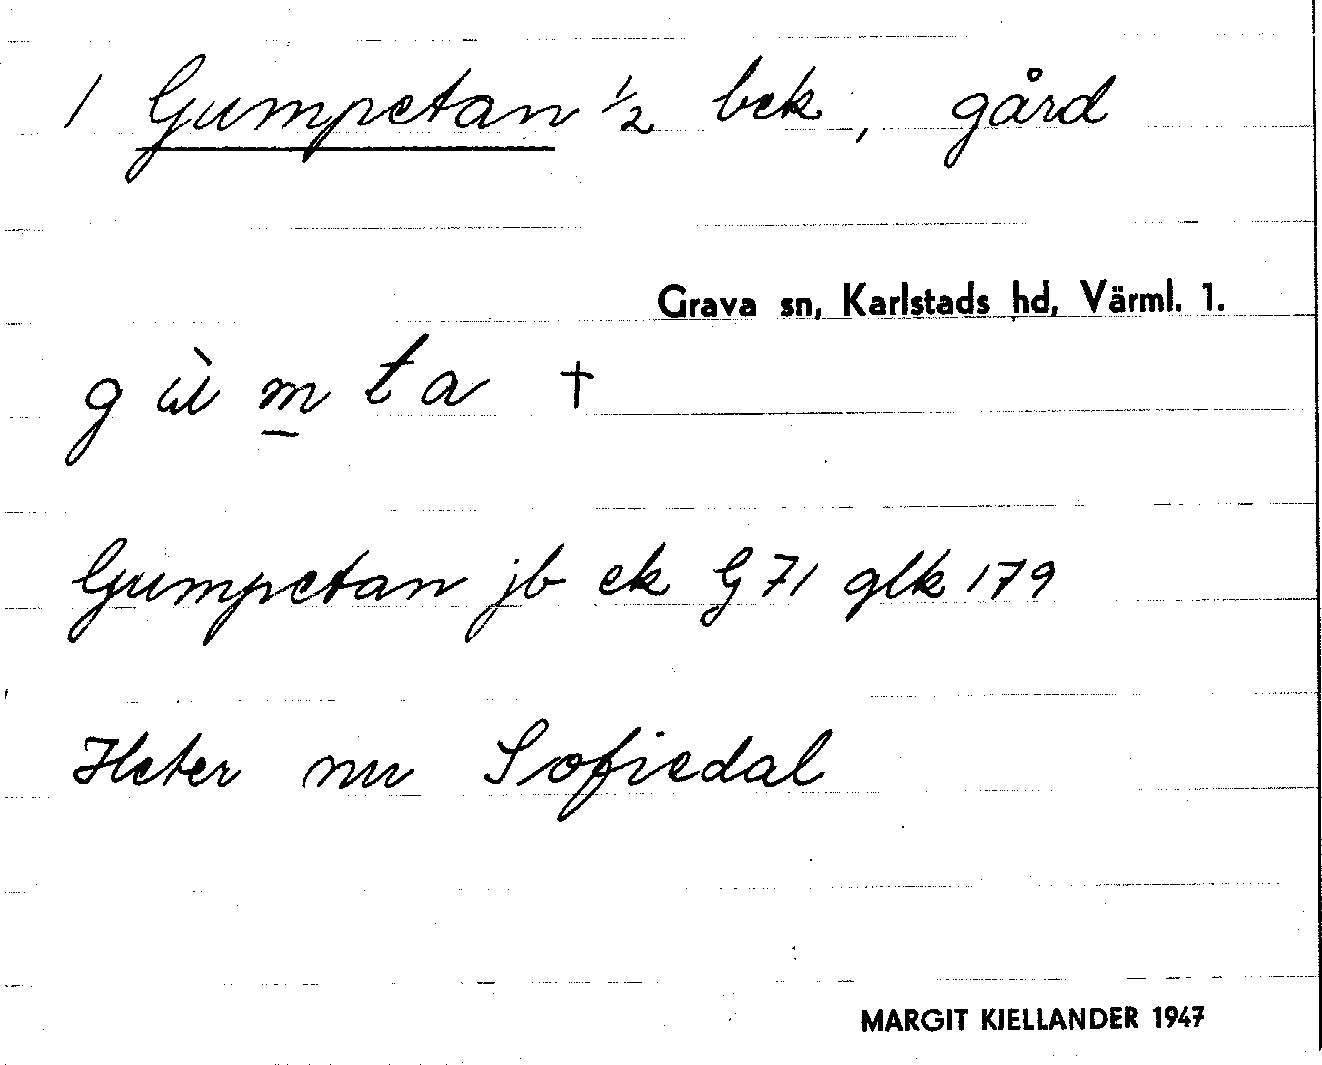 1 Gumpetan 1/2 bek, gård
Grava sn, Karlstads hd, Värml. 1.
g ù m̱ t a †
Gumpetan jb ek G 71 glk 179
Heter nu Sofiedal
MARGIT KJELLANDER 1947